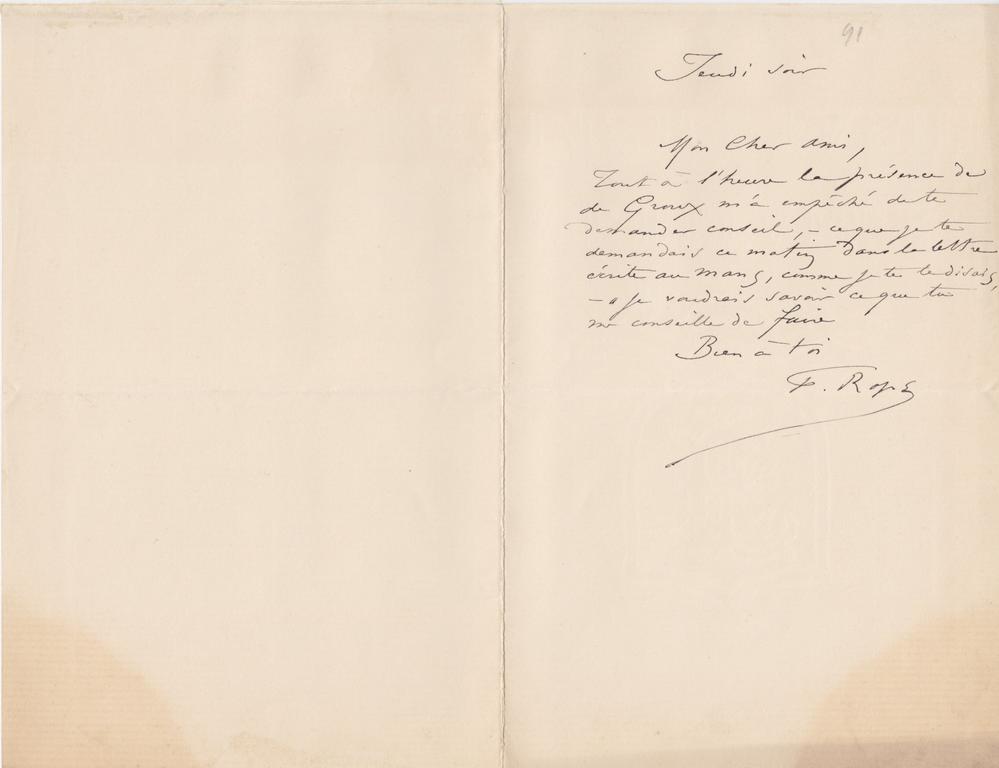 91
Jeudi soir
Mon Cher ami,
Tout à l'heure la présence de
de Groux m'a empêché de te
demander conseil, – ce que je te
demandais ce matin dans la lettre
écrite au Mans, comme je te le disais,
– « je voudrais savoir ce que tu
me conseille de faire
Bien à toi
F. Rops